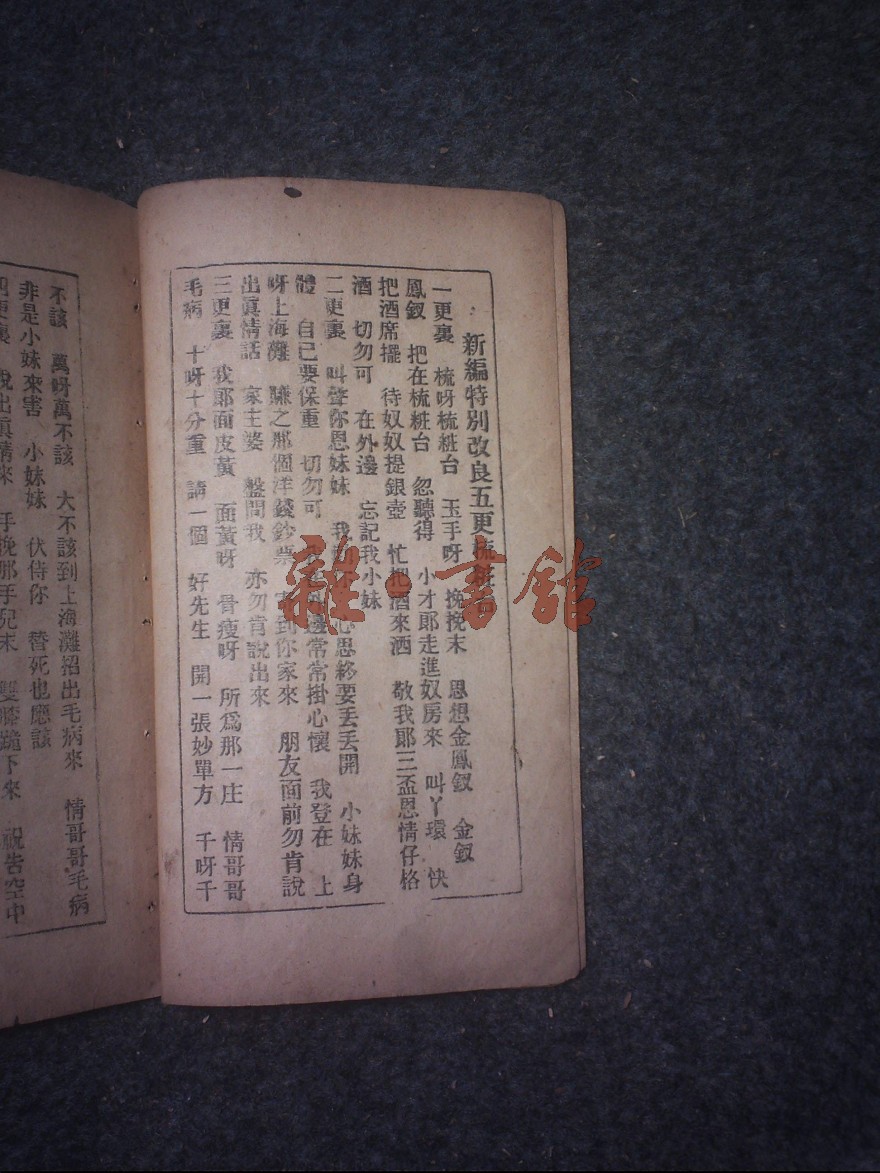 新編特別改良五更梳粧
一更裏　梳呀梳粧台　玉手呀　挽挽末　思想金鳳釵　金釵
鳳釵　把在梳粧台　忽聽得　小才郎走進奴房來　叫丫環　快
把酒席擺　待奴奴提銀壺　忙把酒來洒　敬我郎三盃恩情仔格
酒　切勿可　在外邊　忘記我小妹
二更裏　叫聲你恩妹妹　我　心思終要丟丟開　小妹妹身
體　自已要保重　切勿可　邊常常掛心懷　我登在　上
呀上海灘　賺之那個洋錢鈔票　到你家來　朋友面前勿肯說
出眞情話　家主婆　盤問我　亦勿肯說出來
三更裏　我郎面皮黃　面黃呀　骨瘦呀　所爲那一庄　情哥哥
毛病　十呀十分重　請一個　好先生　開一張妙單方　千呀千
不該　萬呀萬不該　大不該到上海灘招出毛病來　情哥哥毛病
非是小妹來害　小妹妹　伏侍你　替死也應該
更裏　說出眞情來　手挽那手兒末　雙膝跪下來　祝告空中
雜·書館